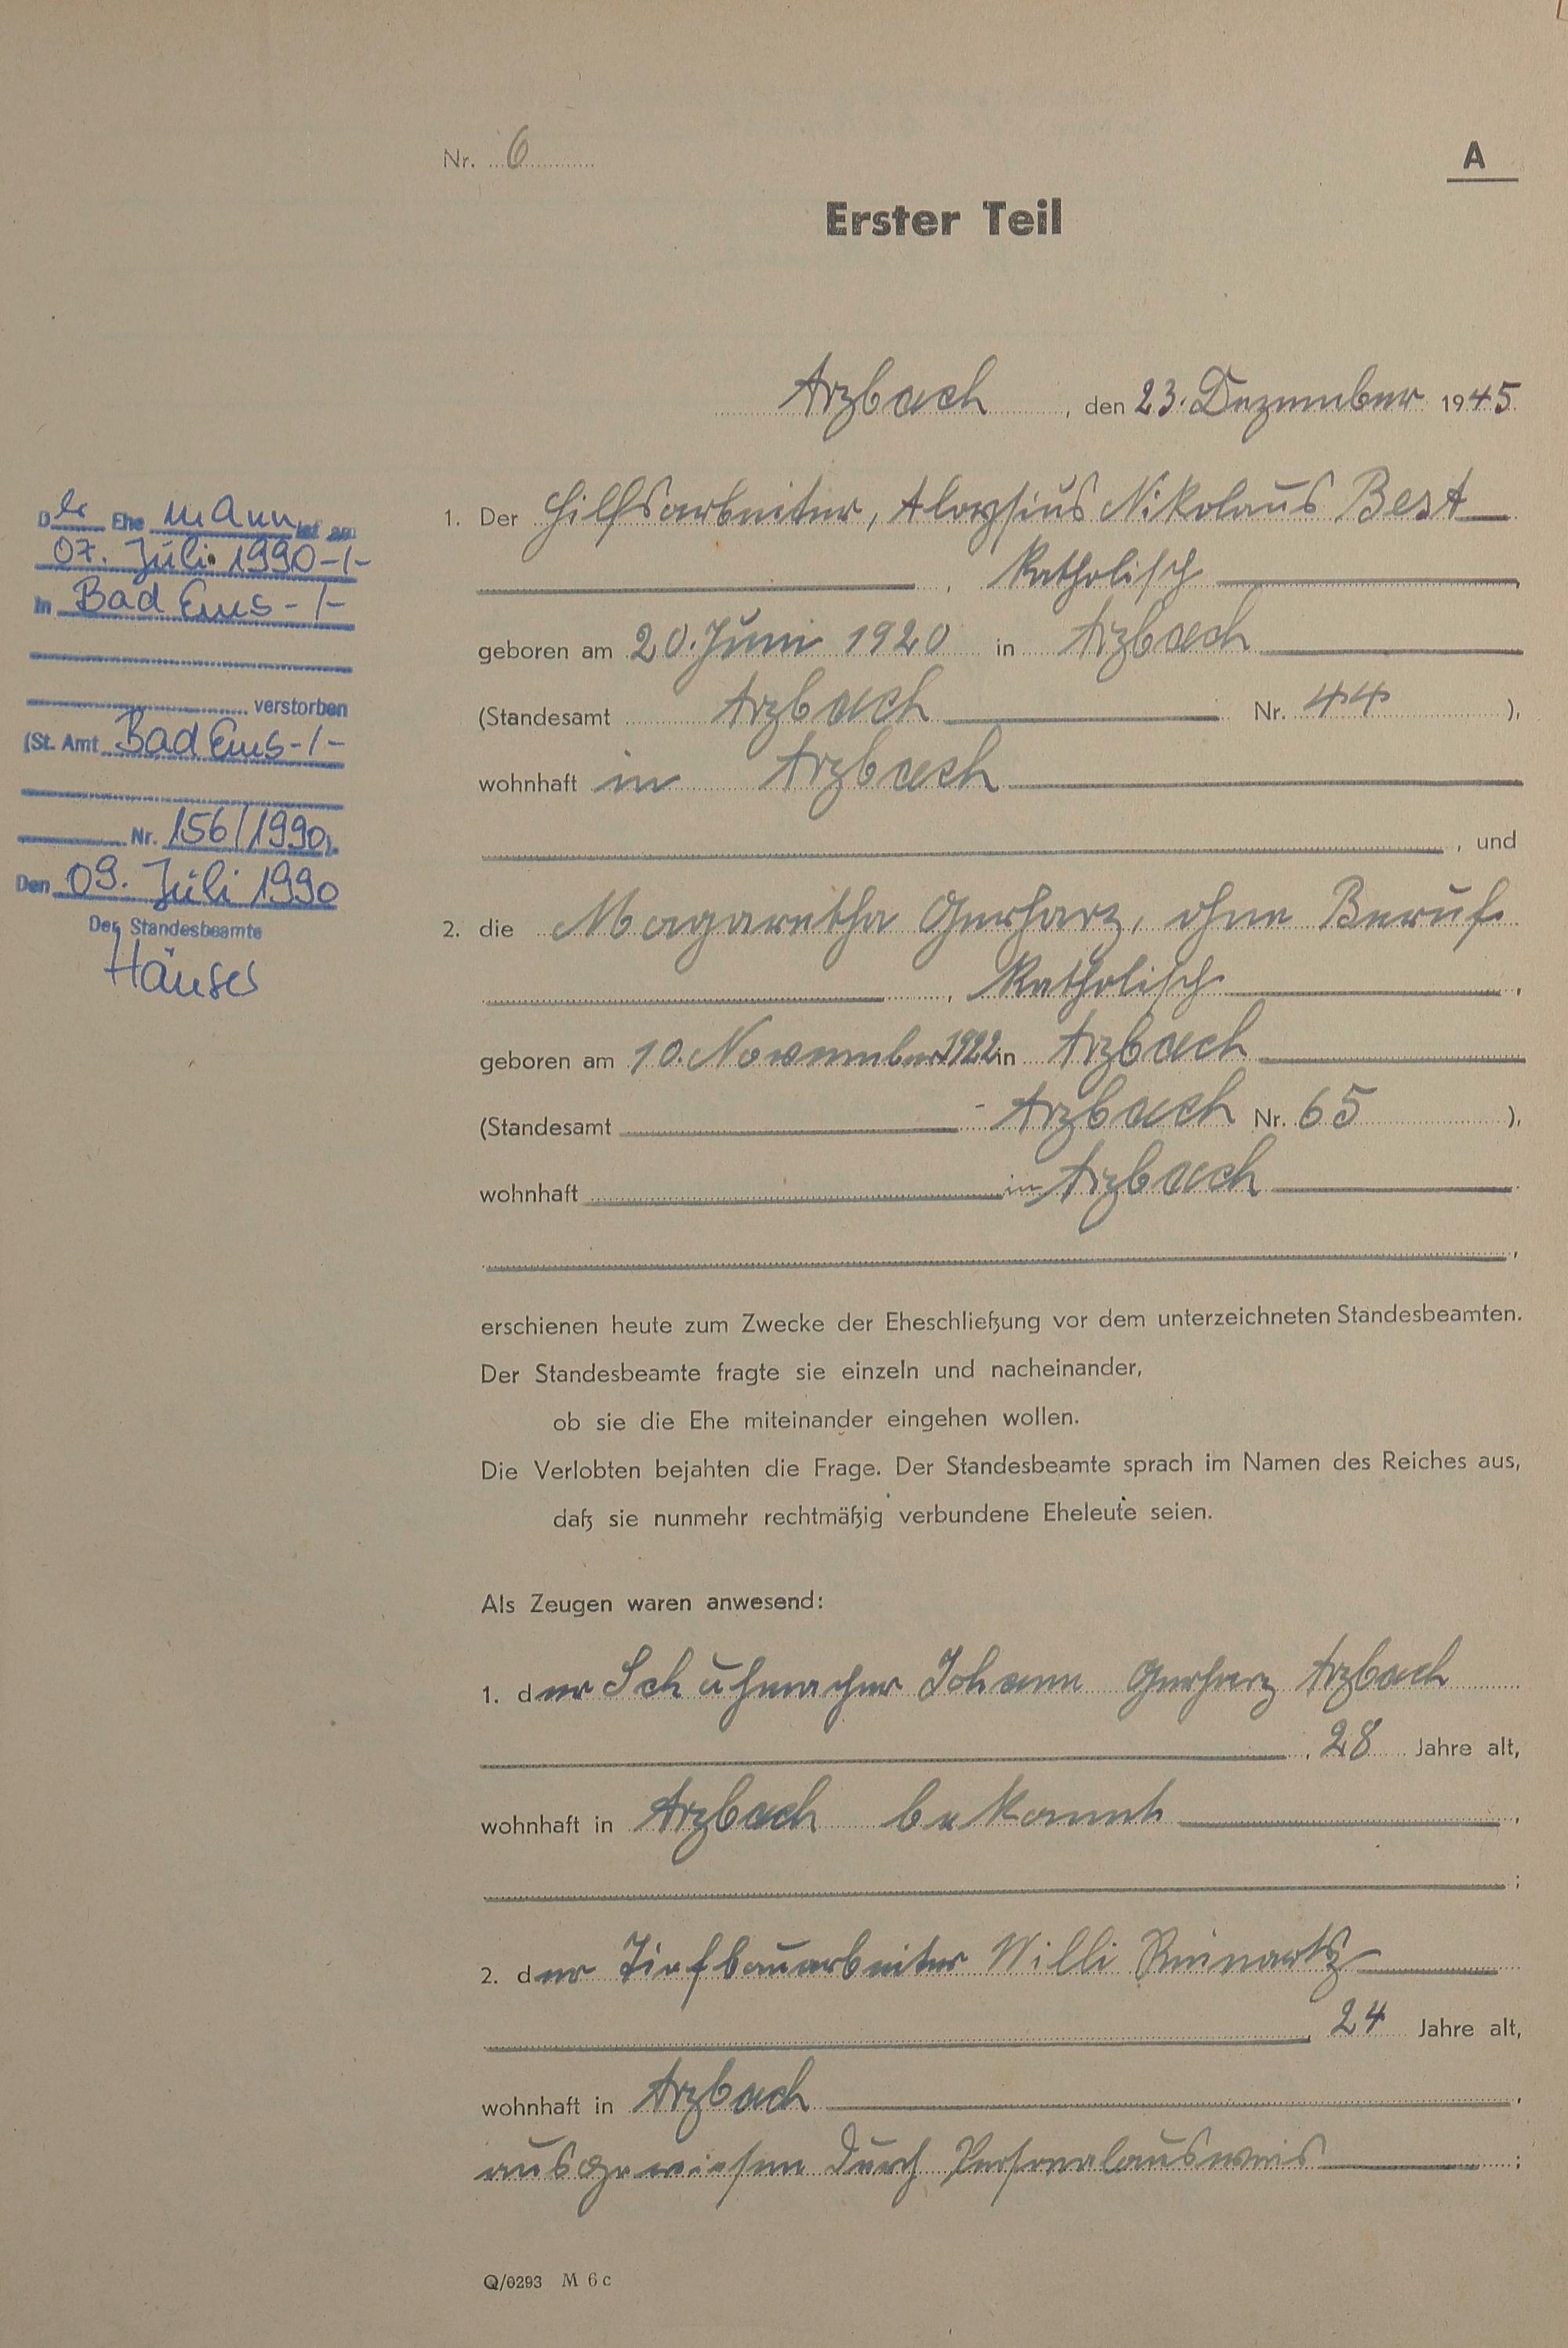 Nr. 6
A
Erster Teil
Arzbach, den 23. Dezember 1945
1. Der Hilfsarbeiter, Aloysius Nikolaus Best
, katholisch ,
geboren am 20. Juni 1920 in Arzbach
(Standesamt Arzbach Nr. 44 ),
wohnhaft in Arzbach
, und
2. die Magaretha Gerharz, ohne Beruf
, katholisch ,
geboren am 10. November 1922 in Arzbach
(Standesamt Arzbach Nr. 65 ),
wohnhaft in Arzbach
,
erschienen heute zum Zwecke der Eheschließung vor dem unterzeichneten Standesbeamten.
Der Standesbeamte fragte sie einzeln und nacheinander,
ob sie die Ehe miteinander eingehen wollen.
Die Verlobten bejahten die Frage. Der Standesbeamte sprach im Namen des Reiches aus,
daß sie nunmehr rechtmäßig verbundene Eheleute seien.
Als Zeugen waren anwesend:
1. der Schuhmacher Johann Gerharz Arzbach
, 28 Jahre alt,
wohnhaft in Arzbach bekannt ,
;
2. der Tiefbauarbeiter Willi Reinartz
, 24 Jahre alt,
wohnhaft in Arzbach ,
ausgewiesen durch Personalausweis ;
Q/0293 M 6 c
Der Ehe mann ist am
07. Juli 1990 -/-
in Bad Ems -/-
verstorben
(St. Amt Bad Ems -/-
Nr. 156/1990).
Den 09. Juli 1990
Der Standesbeamte
Häuser